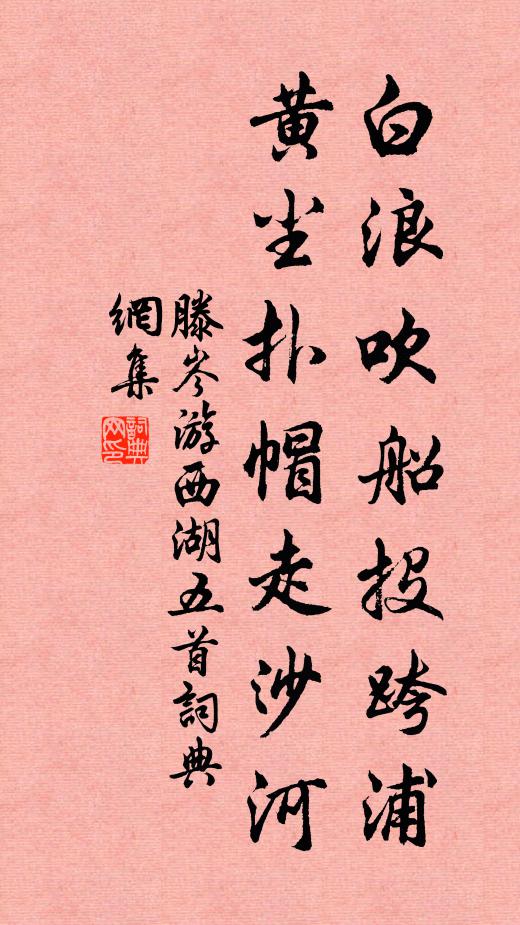 白浪吹船投跨浦
黄尘扑帽走沙河
滕岑游西湖五首詞典
網集
詞典網印